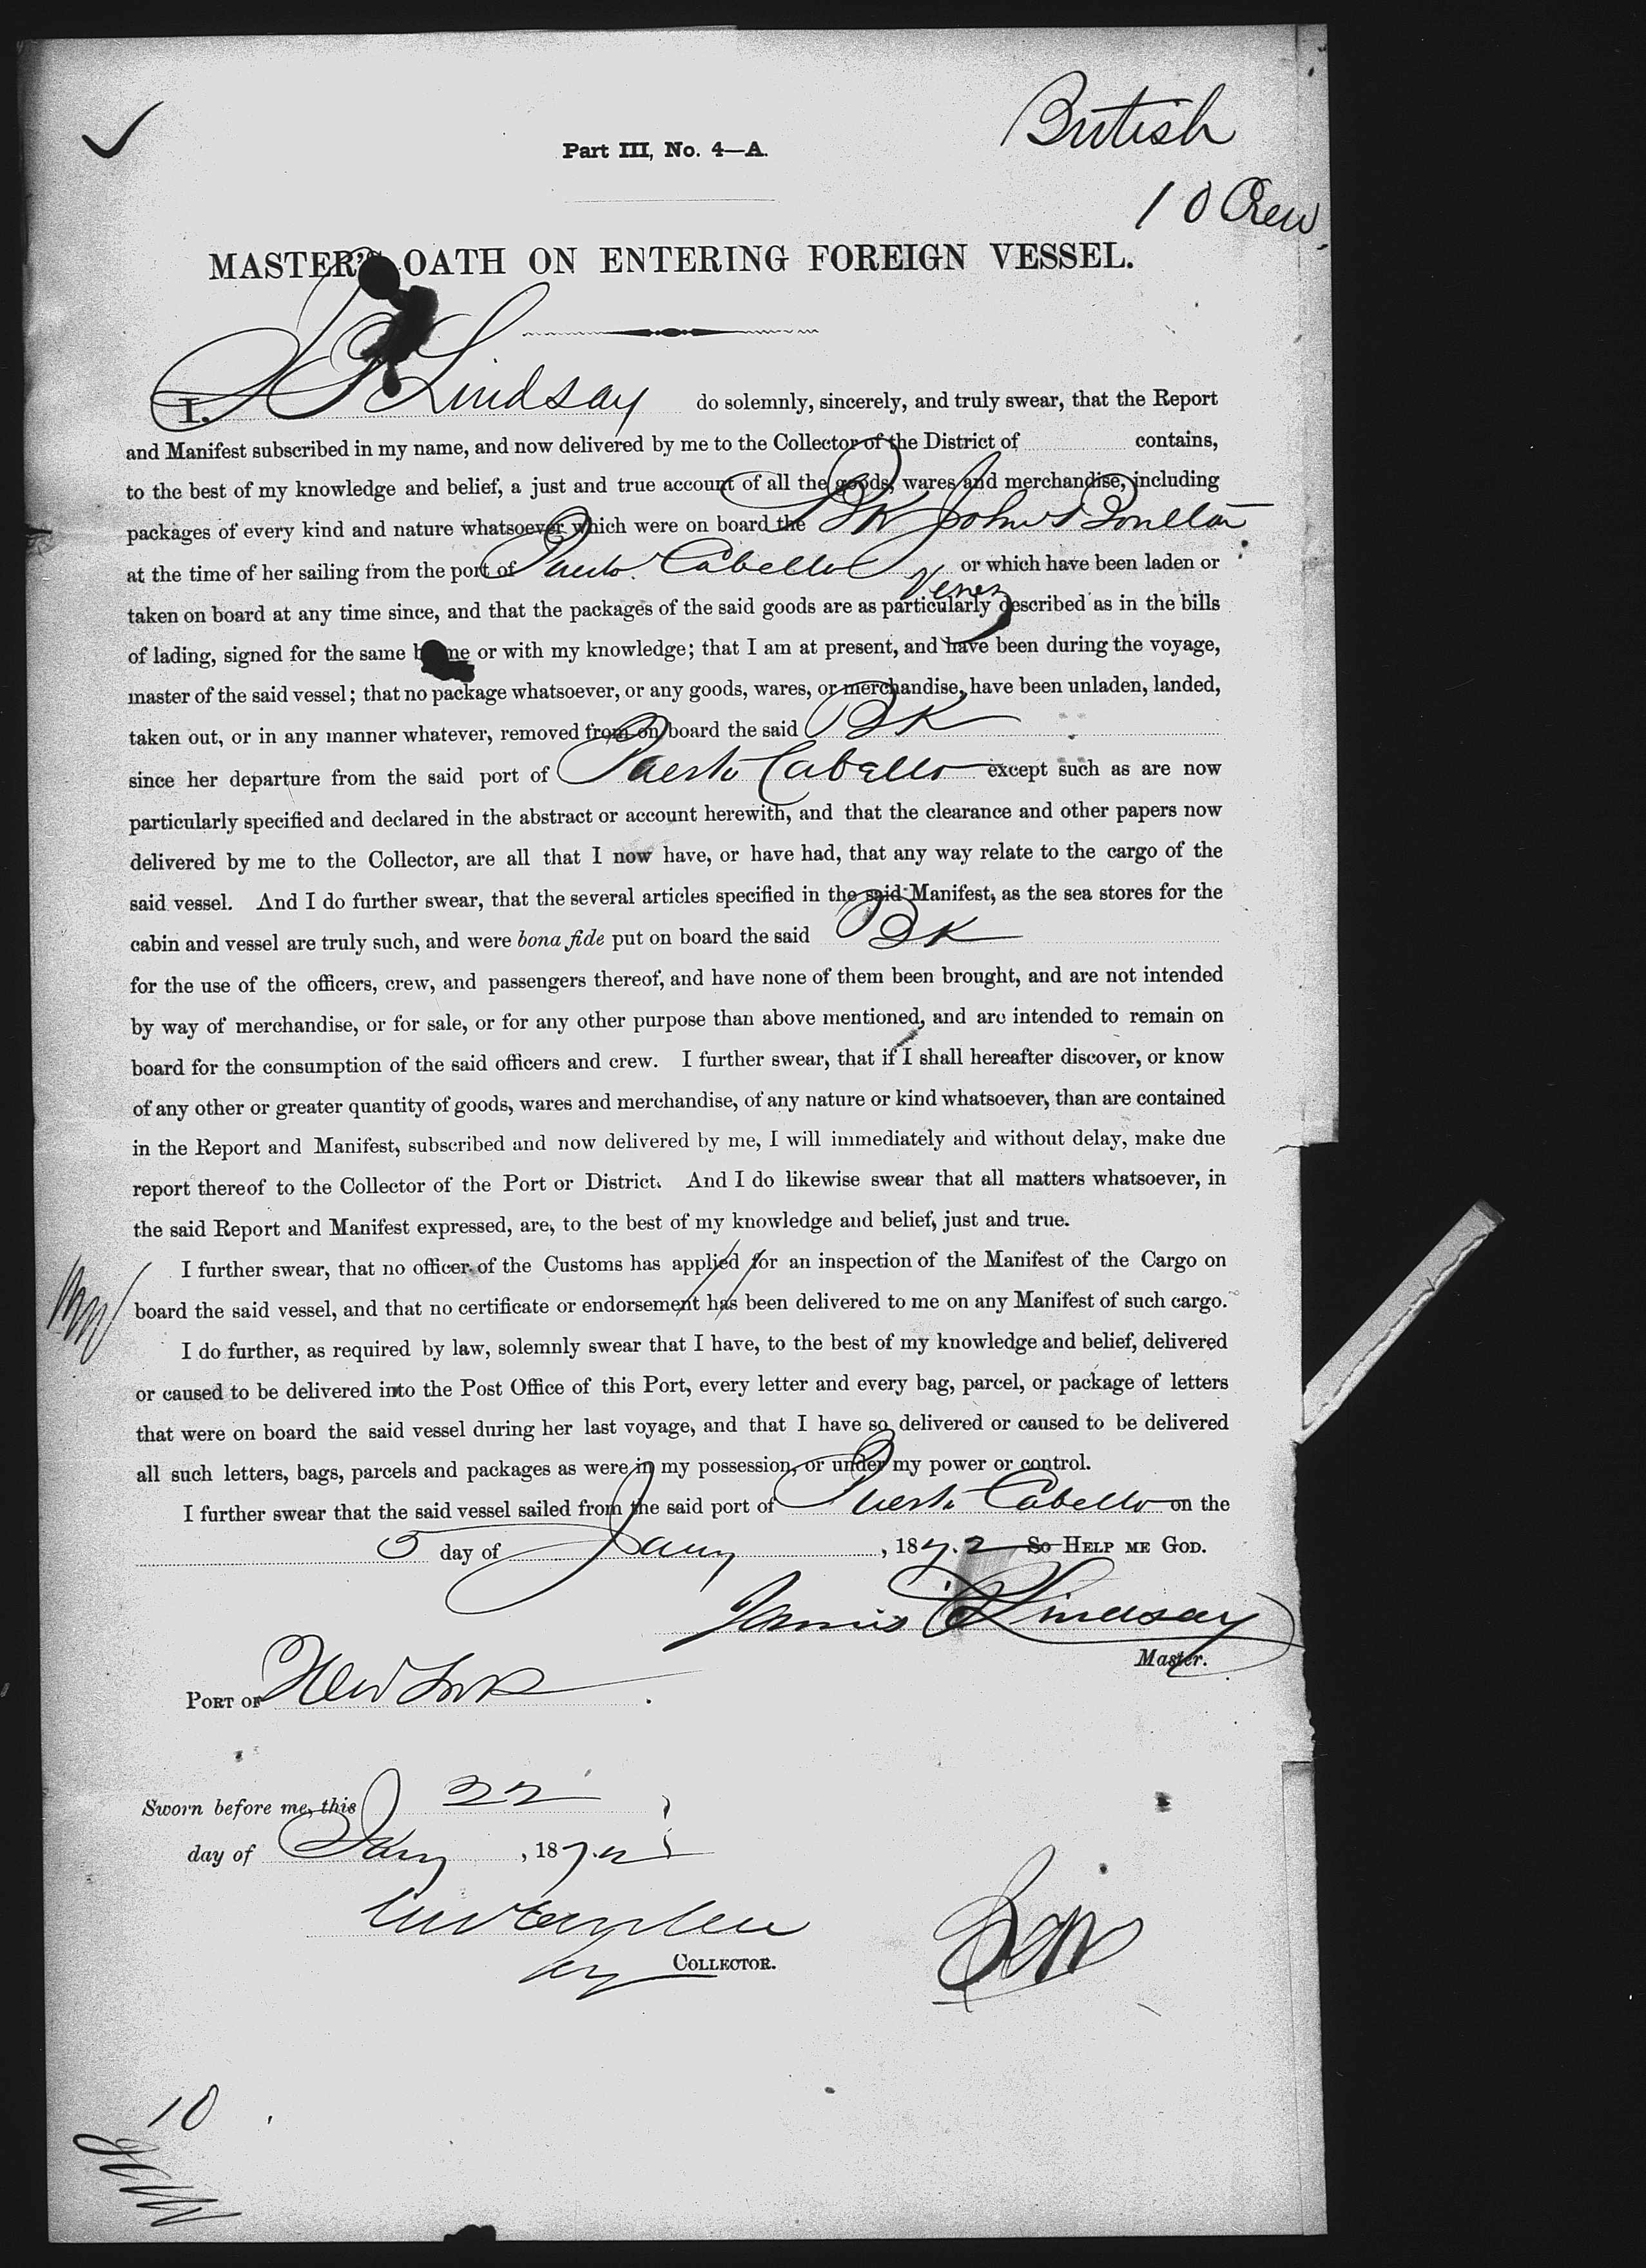 British
Part III, No. 4—A.
10 Crew.
MASTER'S OATH ON ENTERING FOREIGN VESSEL.
I. Lindsay do solemnly, sincerely, and truly swear, that the Report
and Manifest subscribed in my name, and now delivered by me to the Collector of the District of contains,
to the best of my knowledge and belief, a just and true account of all the goods, wares and merchandise, including
packages of every kind and nature whatsoever which were on board the BK John Boulton
at the time of her sailing from the port of Puerto Cabello Venez or which have been laden or
taken on board at any time since, and that the packages of the said goods are as particularly described as in the bills
of lading, signed for the same by me or with my knowledge; that I am at present, and have been during the voyage,
master of the said vessel; that no package whatsoever, or any goods, wares, or merchandise, have been unladen, landed,
taken out, or in any manner whatever, removed from on board the said BK
since her departure from the said port of Puerto Cabello except such as are now
particularly specified and declared in the abstract or account herewith, and that the clearance and other papers now
delivered by me to the Collector, are all that I now have, or have had, that any way relate to the cargo of the
said vessel. And I do further swear, that the several articles specified in the said Manifest, as the sea stores for the
cabin and vessel are truly such, and were bona fide put on board the said BK
for the use of the officers, crew, and passengers thereof, and have none of them been brought, and are not intended
by way of merchandise, or for sale, or for any other purpose than above mentioned, and are intended to remain on
board for the consumption of the said officers and crew. I further swear, that if I shall hereafter discover, or know
of any other or greater quantity of goods, wares and merchandise, of any nature or kind whatsoever, than are contained
in the Report and Manifest, subscribed and now delivered by me, I will immediately and without delay, make due
report thereof to the Collector of the Port or District. And I do likewise swear that all matters whatsoever, in
the said Report and Manifest expressed, are, to the best of my knowledge and belief, just and true.
I further swear, that no officer of the Customs has applied for an inspection of the Manifest of the Cargo on
board the said vessel, and that no certificate or endorsement has been delivered to me on any Manifest of such cargo.
I do further, as required by law, solemnly swear that I have, to the best of my knowledge and belief, delivered
or caused to be delivered into the Post Office of this Port, every letter and every bag, parcel, or package of letters
that were on board the said vessel during her last voyage, and that I have so delivered or caused to be delivered
all such letters, bags, parcels and packages as were in my possession, or under my power or control.
I further swear that the said vessel sailed from the said port of Puerto Cabello on the
5 day of Jany, 187.2 So HELP ME GOD.
James Lindsay
Master.
PORT OF New York.
Sworn before me, this 22
day of Jany, 187.2
COLLECTOR.
10